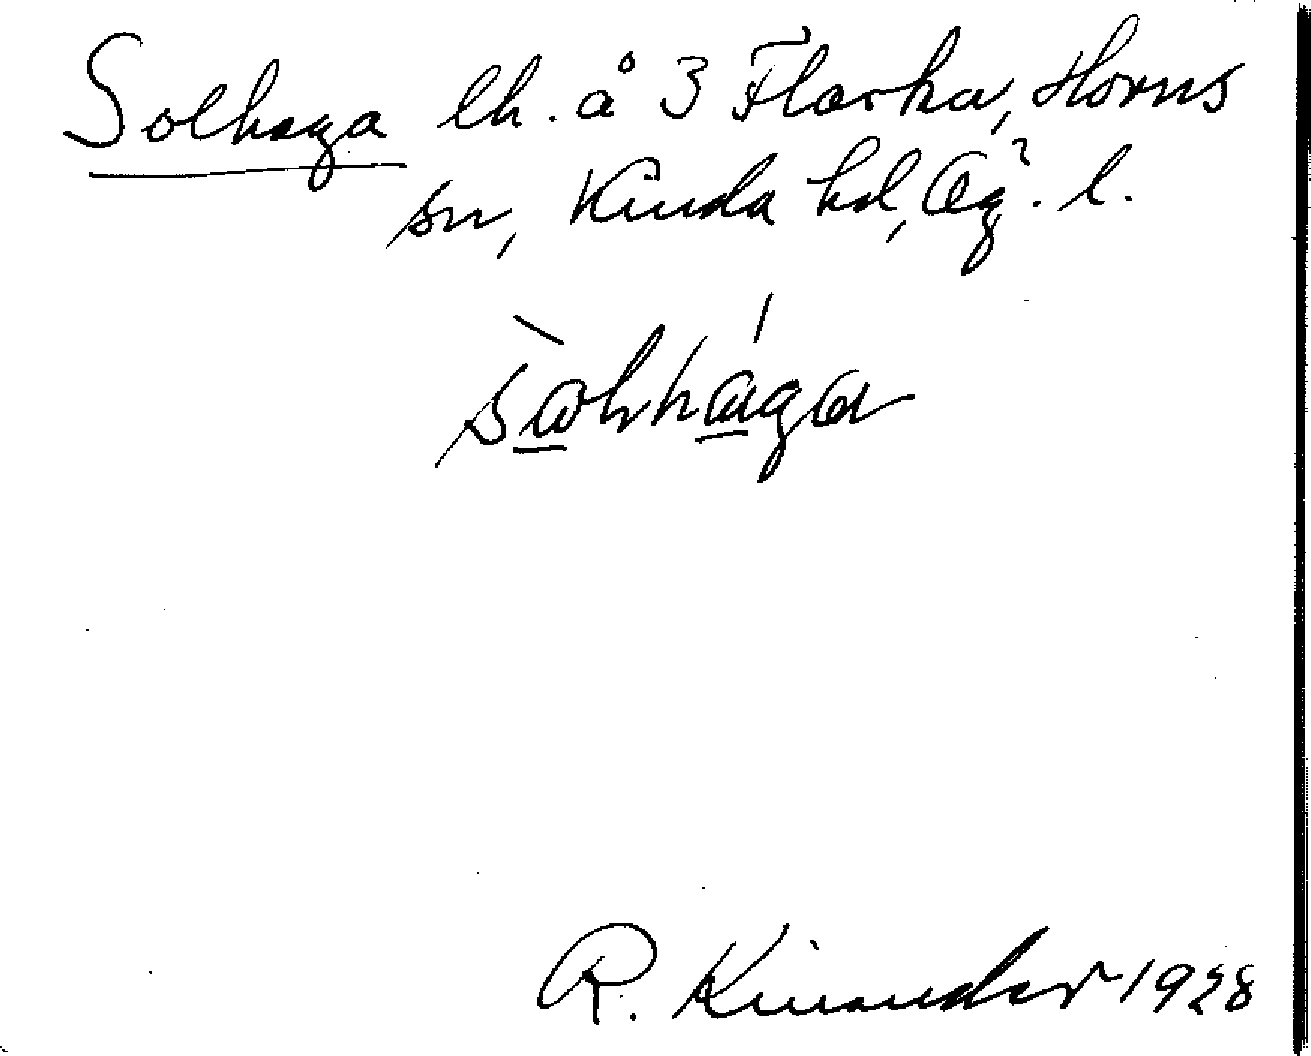 Solhaga lh. å 3 Flaska, Horns
sn, Kinda hd, Ög. l.
R. Kinander 1928